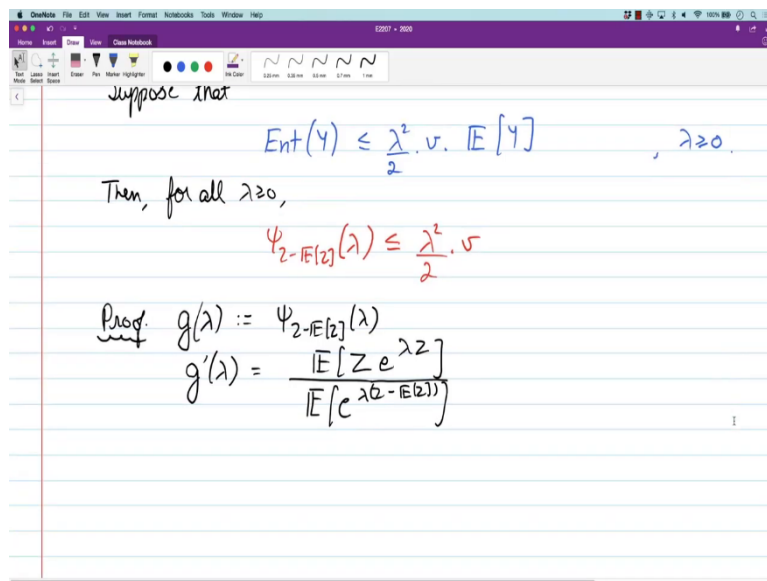 OneNote File Edit View Insert Format Notebooks Tools Window Help 100%
E2207 - 2020
Home Insert Draw View Class Notebook
Text Mode Lasso Select Insert Space Eraser Pen Marker Highlighter Ink Color 0.25 mm 0.35 mm 0.5 mm 0.7 mm 1 mm
Suppose that
Ent(Y) ≤ λ²/2 . v. 𝔼[Y] , λ≥0.
Then, for all λ≥0,
ψ_{Z-𝔼[Z]}(λ) ≤ λ²/2 . v
Proof. g(λ) := ψ_{Z-𝔼[Z]}(λ)
g'(λ) = 𝔼[Z e^{λZ}] / 𝔼[e^{λ(Z-𝔼[Z])}]